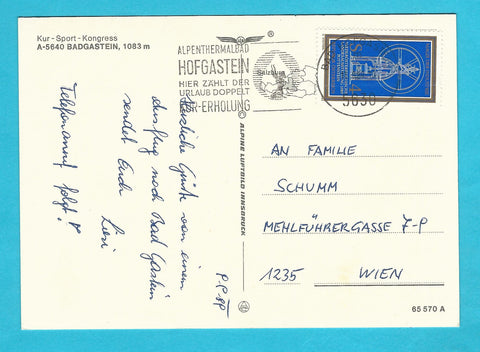 Kur - Sport - Kongress
A-5640 BADGASTEIN, 1083 m
ALPENTHERMALBAD
HOFGASTEIN
HIER ZÄHLT DER
URLAUB DOPPELT
KUR-ERHOLUNG
Salzburg
5630
Herzliche Grüße von einem
Ausflug nach Bad Gastein
sendet Euch
Lisi
Telefonanruf folgt!
© ALPINE LUFTBILD INNSBRUCK
AN FAMILIE
SCHUMM
MEHLFÜHRERGASSE 7-9
1235 WIEN
65 570 A